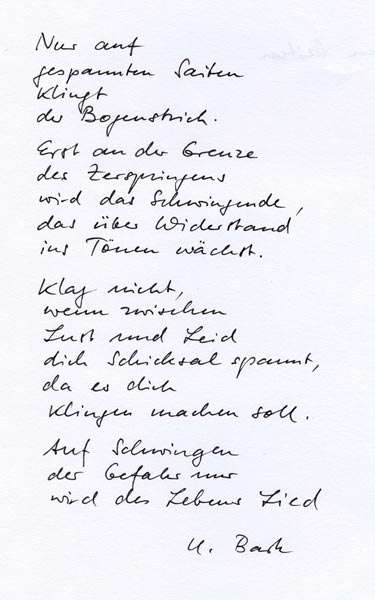 Nur auf
gespannten Saiten
klingt
der Bogenstrich.
Erst an der Grenze
des Zerspringens
wird das Schwingende,
das über Widerstand
ins Tönen wächst.
Klag nicht,
wenn zwischen
Lust und Leid
dich Schicksal spannt,
da es dich
klingen machen soll.
Auf Schwingen
der Gefahr nur
wird des Lebens Lied
U.